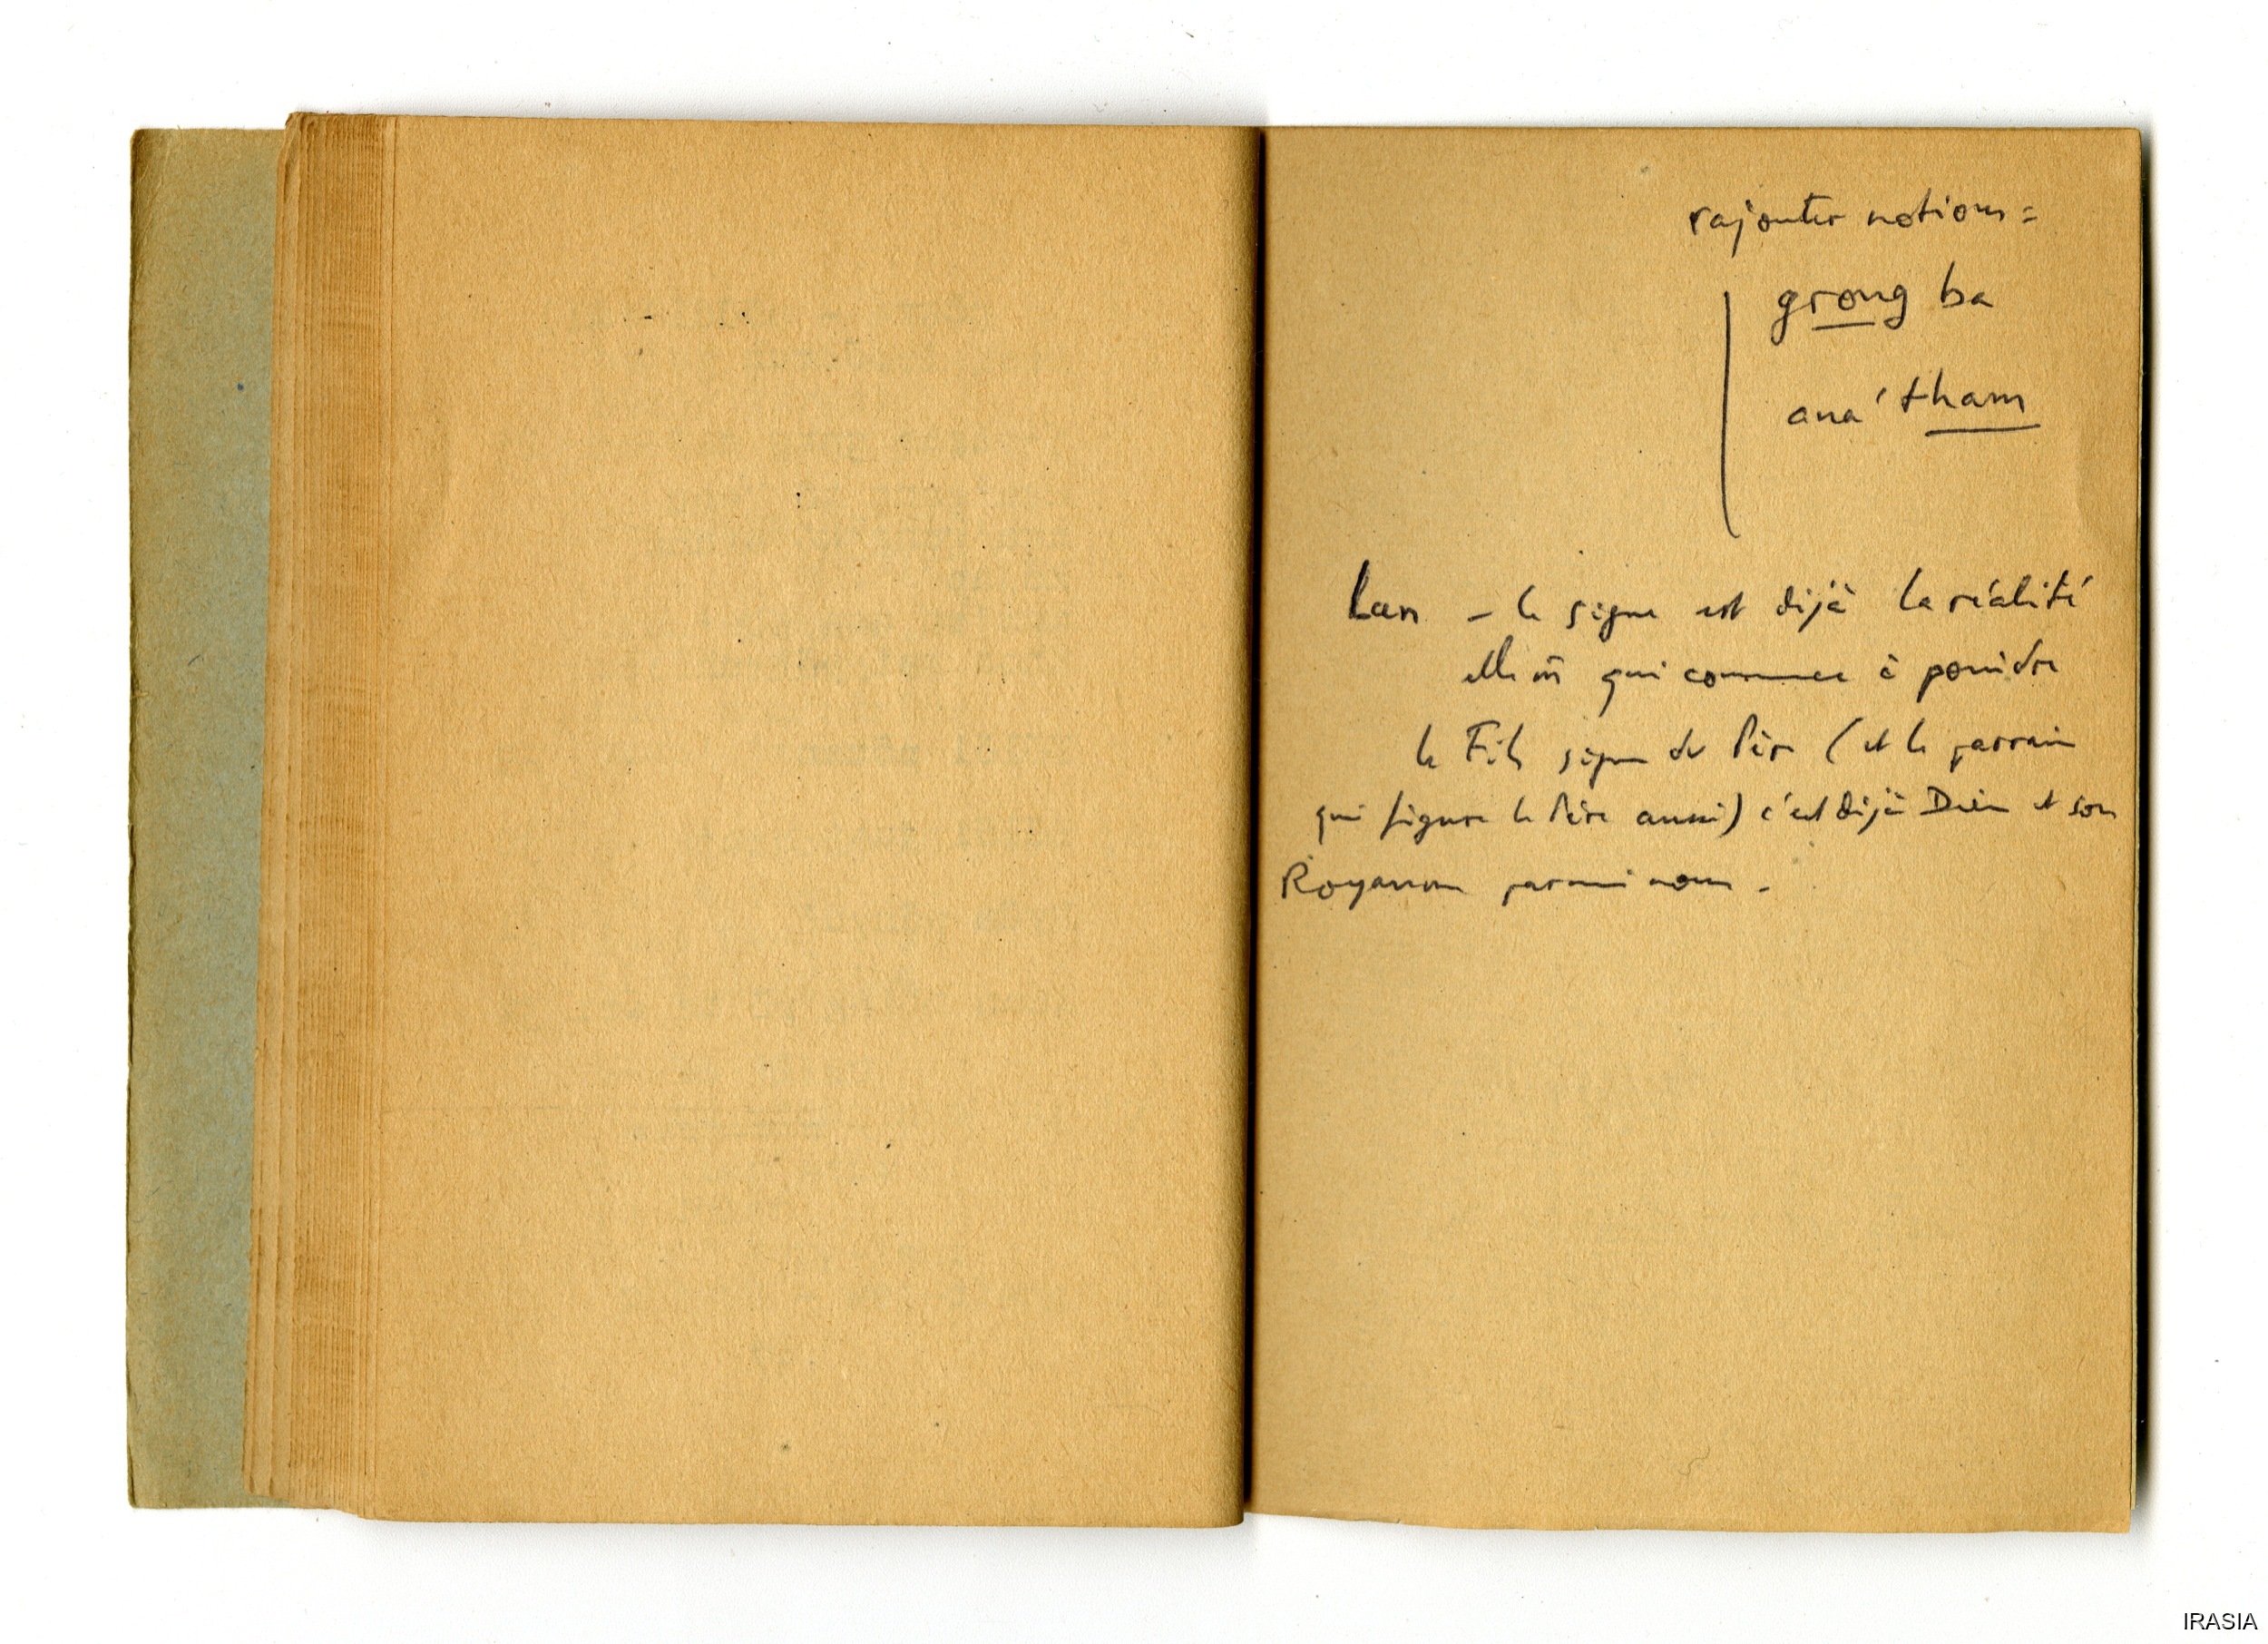 rajouter notions =
grong ba
ana' tham
lan – le signe est déjà la réalité
elle m̄ qui commence à poindre
le Fils signe du Père (et le parrain
qui figure le Père aussi) c'est déjà Dieu et son
Royaume parmi nous.
IRASIA